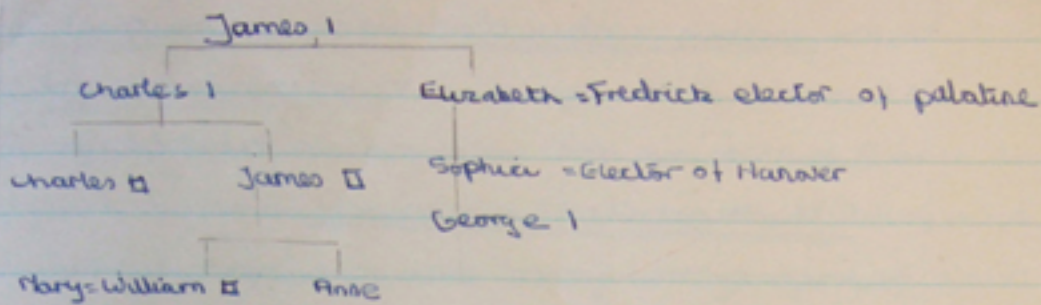 James 1
Charles 1 Elizabeth = Fredrick elector of palatine
Charles II James II Sophia = Elector of Hanover
George 1
Mary = William III Anne